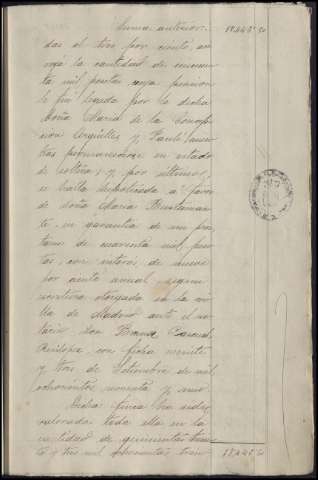 Suma anterior. 18.445'50
das el tres por ciento, an
la cantidad de
mil pesetas cuya pension
le fué legada por la dicha
Doña Maria de la Concep
cion Arguelles y mien
tras permaneciese en estado
de soltera; y por ultimo,
se halla hipotecada á favor
de doña Maria Bustaman
te en garantia de un pres
tamo de noventa mil pese
tas, con interés de nueve
por ciento anual, segun
escritura otorgada en la vi
lla de Madrid ante el no
tario, Don Bruno Pascual
Ruilopez, con fecha veinte
y tres de Setiembre de mil
ochocientos noventa y uno.
Dicha finca ha sido
valorada toda ella en la
cantidad de quinientas trein
ta y tres mil ochocientas trein 18.445'50